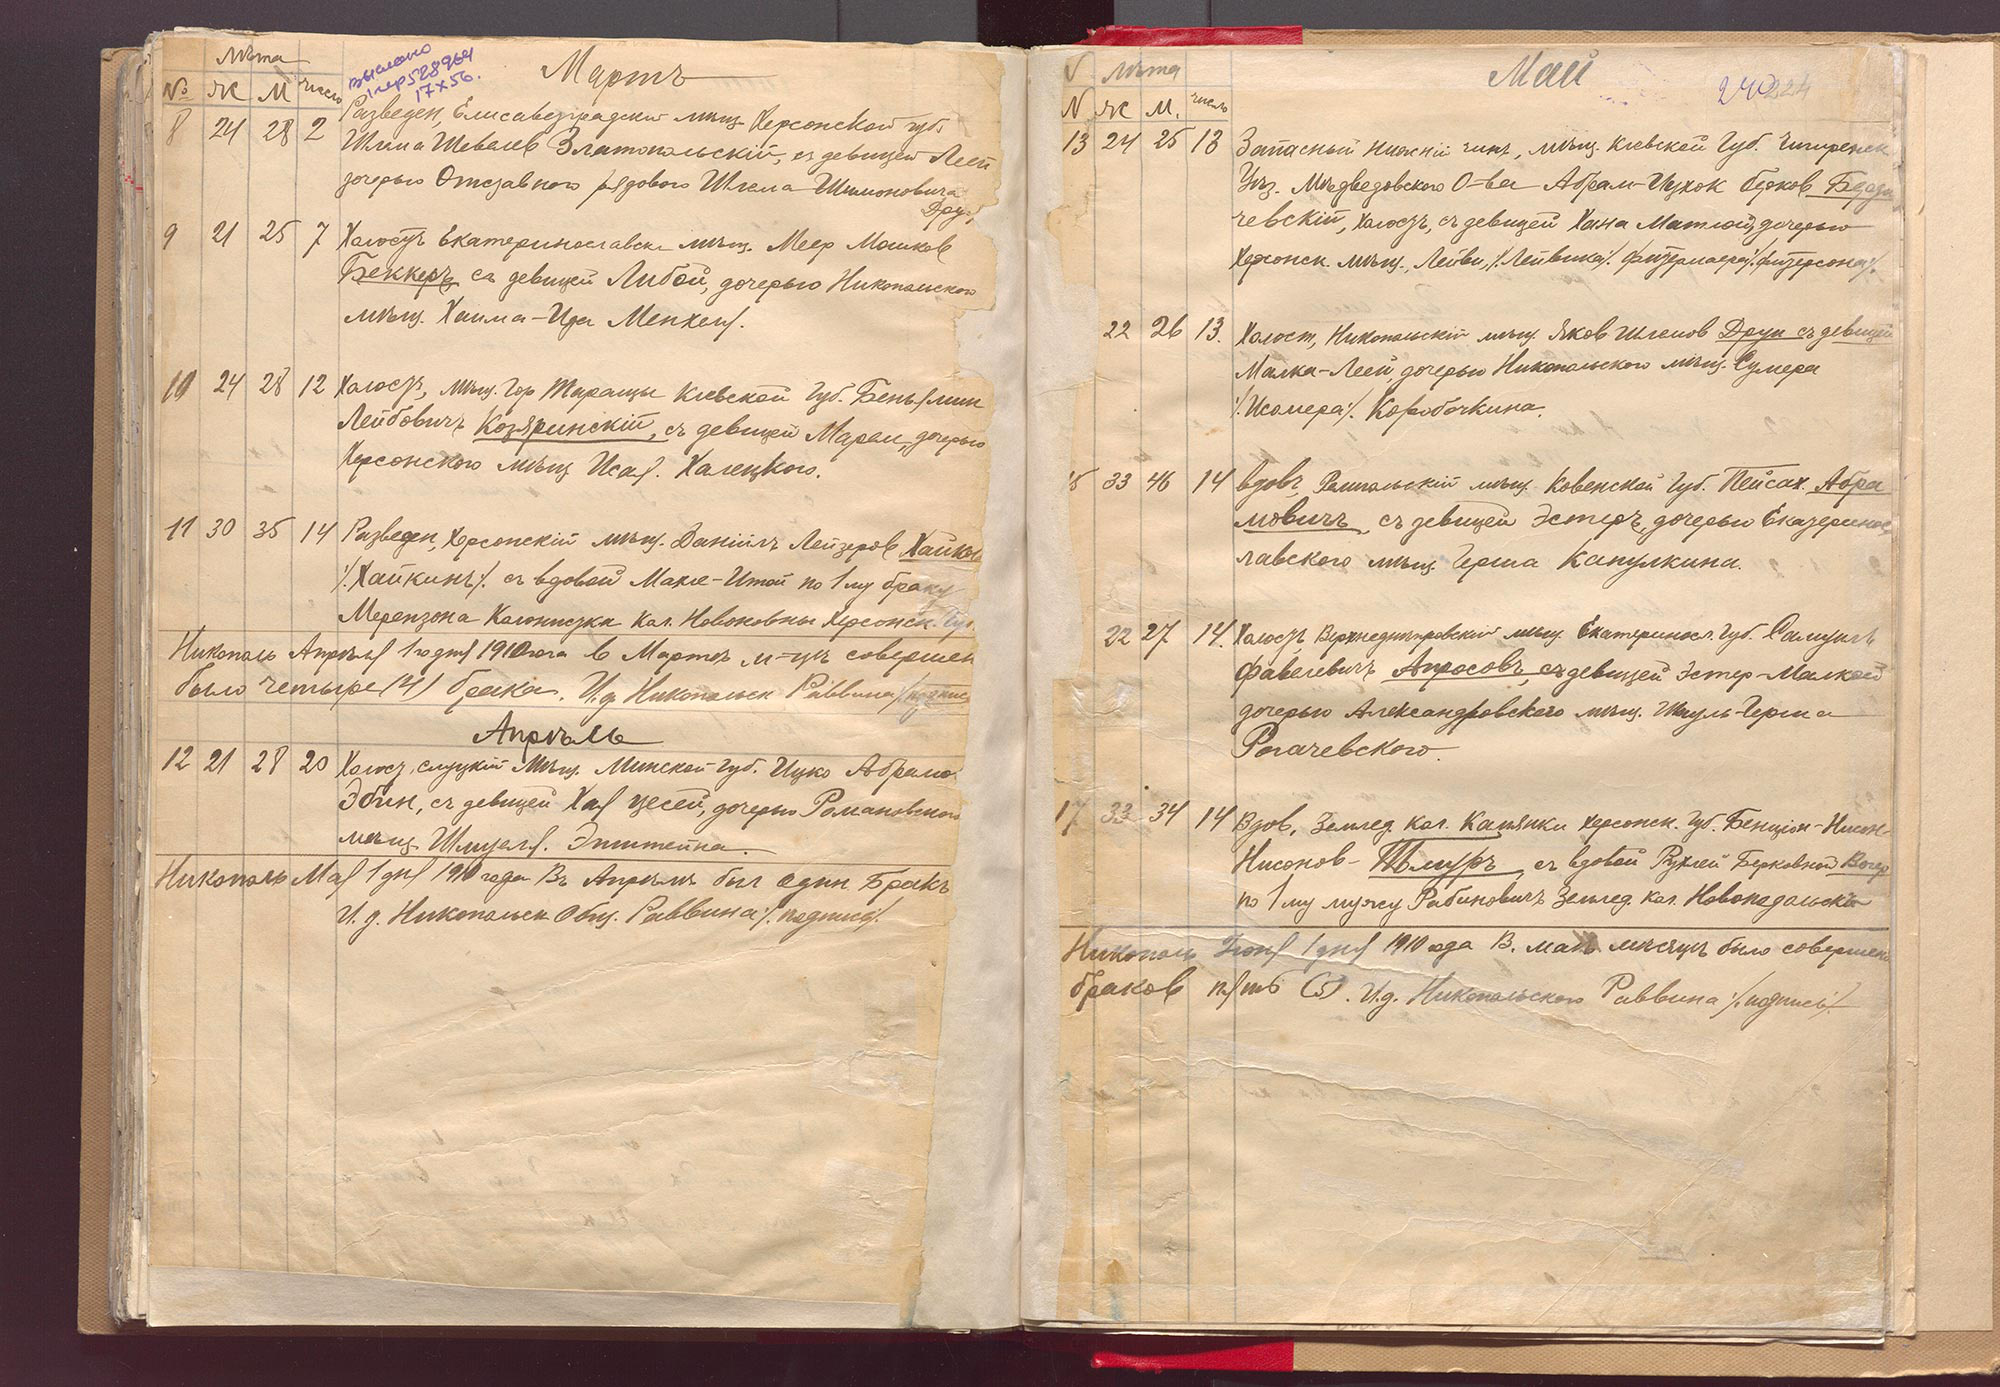 Лѣта
№ Ж М число
выслано
1 чер 528964
17 X 56.
Мартъ
8 24 28 2 Разведен, Елисаветградский мѣщ. Херсонской губ.
Шлема Шевелев Златопольскій, съ девицей Леей
дочерью Отставного рядового Шлема Шимоновича
Друз
9 21 25 7 Холостъ Екатеринославск мѣщ. Меер Мошков
Беккеръ съ девицей Либой, дочерью Никопольского
мѣщ. Хаима-Ида
10 24 28 12 Холостъ, мѣщ. Гор Таращи Кіевской Губ. Беньямин
Лейбовичъ Козяринскій, съ девицей Мареи, дочерью
Херсонского мѣщ Исая. Халецкого.
11 30 35 14 Разведен, Херсонскій мѣщ. Даніилъ Лейзеров Хайкин
/.Хайкинъ/. съ вдовой Махле-Итой по 1му браку
Мерензона Колонистка кол. Новоковны Херсонск. Губ.
Никополь Апрѣля 1 дня 1910 года в Мартѣ м-цѣ совершен
было четыре (4) брака. И.д. Никопольск Раввина /подпис
Апрѣль
12 21 28 20 Холост, слуцкій мѣщ. Минской Губ. Ицко Абрамо
Эбин, съ девицей Хая Цесей, дочерью Романовского
мѣщ. Шмуеля. Эпштейна.
Никополь Мая 1 дня 1910 года Въ Апрѣлѣ был один Бракъ
И.д. Никопольск Общ. Раввина /. подпись/.
Лѣта
N Ж М. число
Май
224
13 24 25 13 Запасный Нижній чинъ, мѣщ. Кіевской Губ. Чигиренск
Уѣз. Мѣдведовского О-ва Абрам-Ицхок Берков Берди
чевскій, Холостъ, съ девицей Хана Матлой, дочерью
Херсонск. мѣщ. Лейви, /.Лейвика/.
22 26 13. Холост, Никопольскій мѣщ. Яков Шлемов Друй съ девицей
Малка-Леей, дочерью Никопольского мѣщ. Сумера
/.Исомера/. Коробочкина.
33 46 14 Вдовъ, мѣщ. Ковенской Губ. Пейсах. Абра
мовичъ, съ девицей Эстеръ, дочерью Екатеринос
лавского мѣщ. Герша Капулкина.
22 27 14. Холостъ, Верхнеднѣпровскій мѣщ. Екатеринося. Губ. Самуилъ
Фавелевичъ Апросовъ, съ девицей Эстер-Малкой
дочерью Александровского мѣщ. Шауль-Герша
Рогачевского.
17 33 34 14 Вдов, Землед. кол. Каменки Херсонск. Губ. Бенціон-Нисон-
Нисонов съ вдовой Рухлей Берковной
по 1му мужу Рабиновичъ Землед. кол. Новоподольскъ
Никополь Іюня 1 дня 1910 года В. маѣ мѣсяцѣ было совершен
браков пять (5). И.д. Никопольского Раввина /.подпись/.